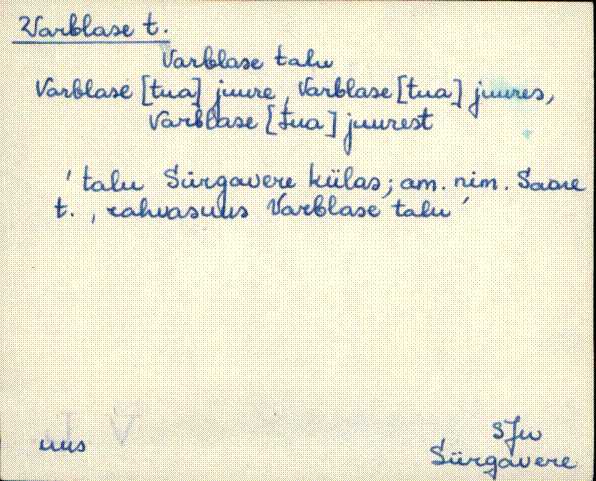 Varblase t.
Varblase talu
Varblase [tua] juure, Varblase [tua] juures,
Varblase [tua] juurest
'talu Sürgavere külas; am. nim. Saare
t., rahvasuus Varblase talu'
SJn
uus
Sürgavere